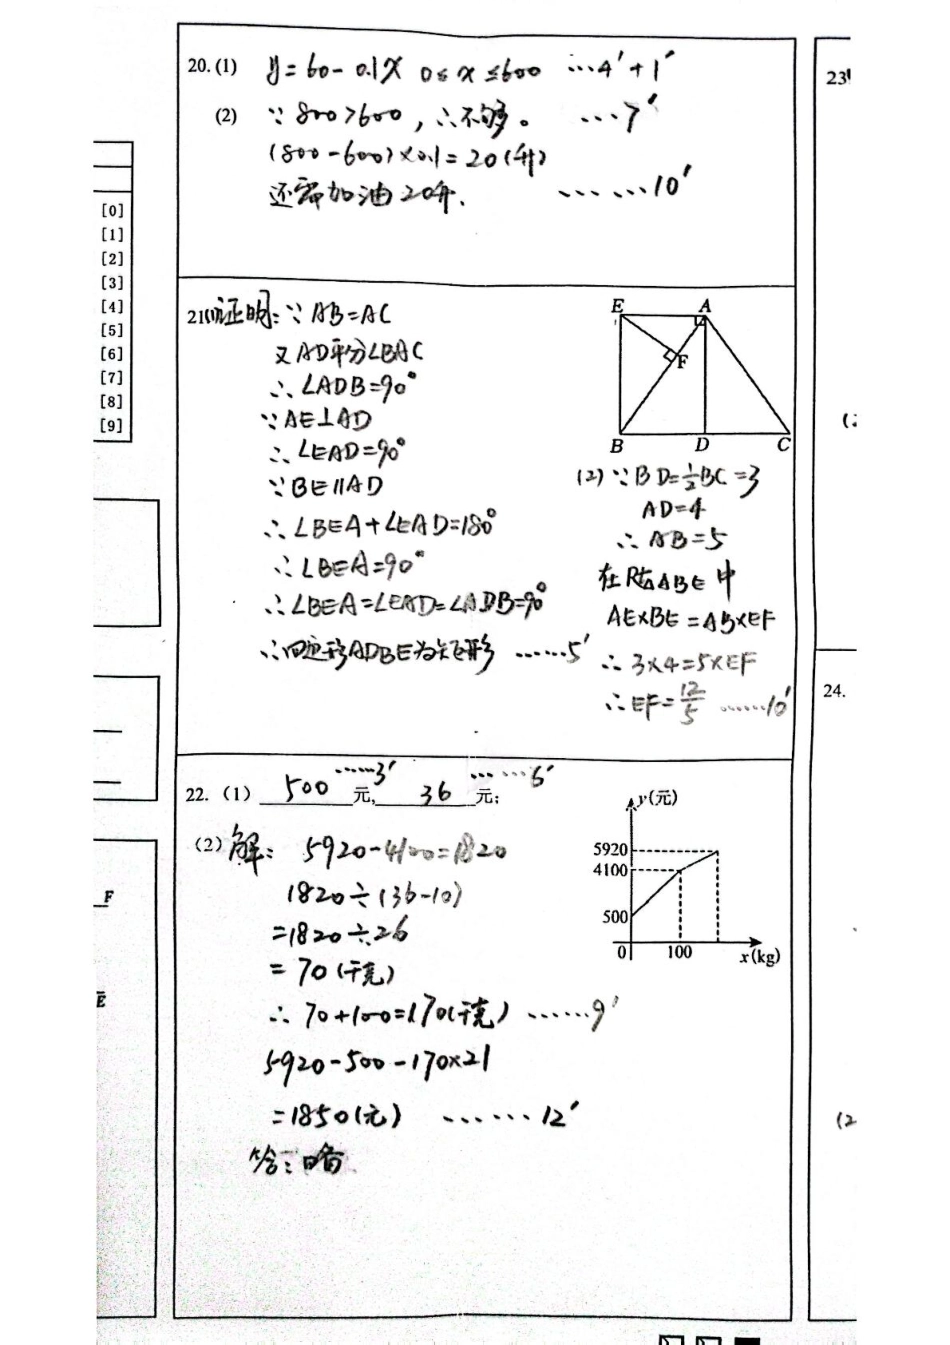 20. (1) y=60-0.1x 0≤x≤600 …4′+1′
(2) ∵800>600，∴不够。 …7′
(800-600)×0.1=20(升)
还需加油20升. ……10′
[0]
[1]
[2]
[3]
[4]
[5]
[6]
[7]
[8]
[9]
F
E
21.(1)证明:∵AB=AC
又AD平分∠BAC
∴∠ADB=90°
∵AE⊥AD
∴∠EAD=90°
∵BE∥AD
∴∠BEA+∠EAD=180°
∴∠BEA=90°
∴∠BEA=∠EAD=∠ADB=90°
∴四边形ADBE为矩形 ……5′
E A
F
B D C
(2)∵BD=½BC=3
AD=4
∴AB=5
在Rt△ABE中
AE×BE=AB×EF
∴3×4=5×EF
∴EF=12/5 ……10′
22. (1) 500 元, ……3′ 36 元; ……6′
(2)解: 5920-4100=1820
1820÷(36-10)
=1820÷26
=70(千克)
∴70+100=170(千克) ……9′
5920-500-170×21
=1850(元) ……12′
答：略
y(元)
5920
4100
500
0 100 x(kg)
23
(2
24.
(2